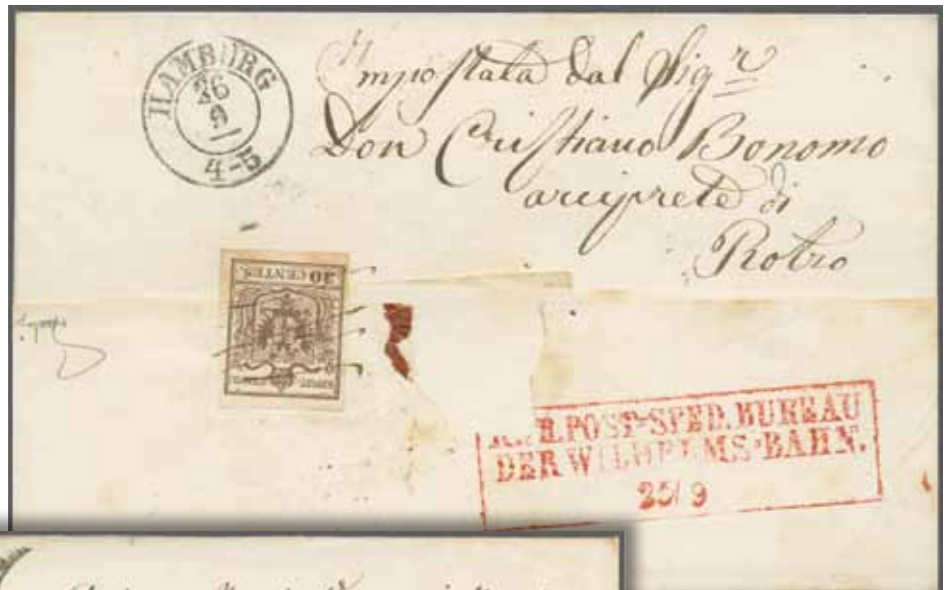 HAMBURG
26
9
4-5
Impostata dal Sigr
Don Cristiano Bonomo
arciprete di
Rotzo
30 CENTES.
H. POST-SPED. BUREAU
DER WILHELMS-BAHN.
25/9